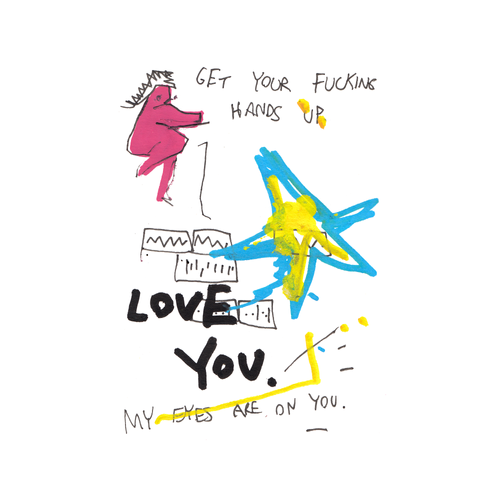 GET YOUR FUCKING
HANDS UP
LOVE
YOU.
MY EYES ARE ON YOU.